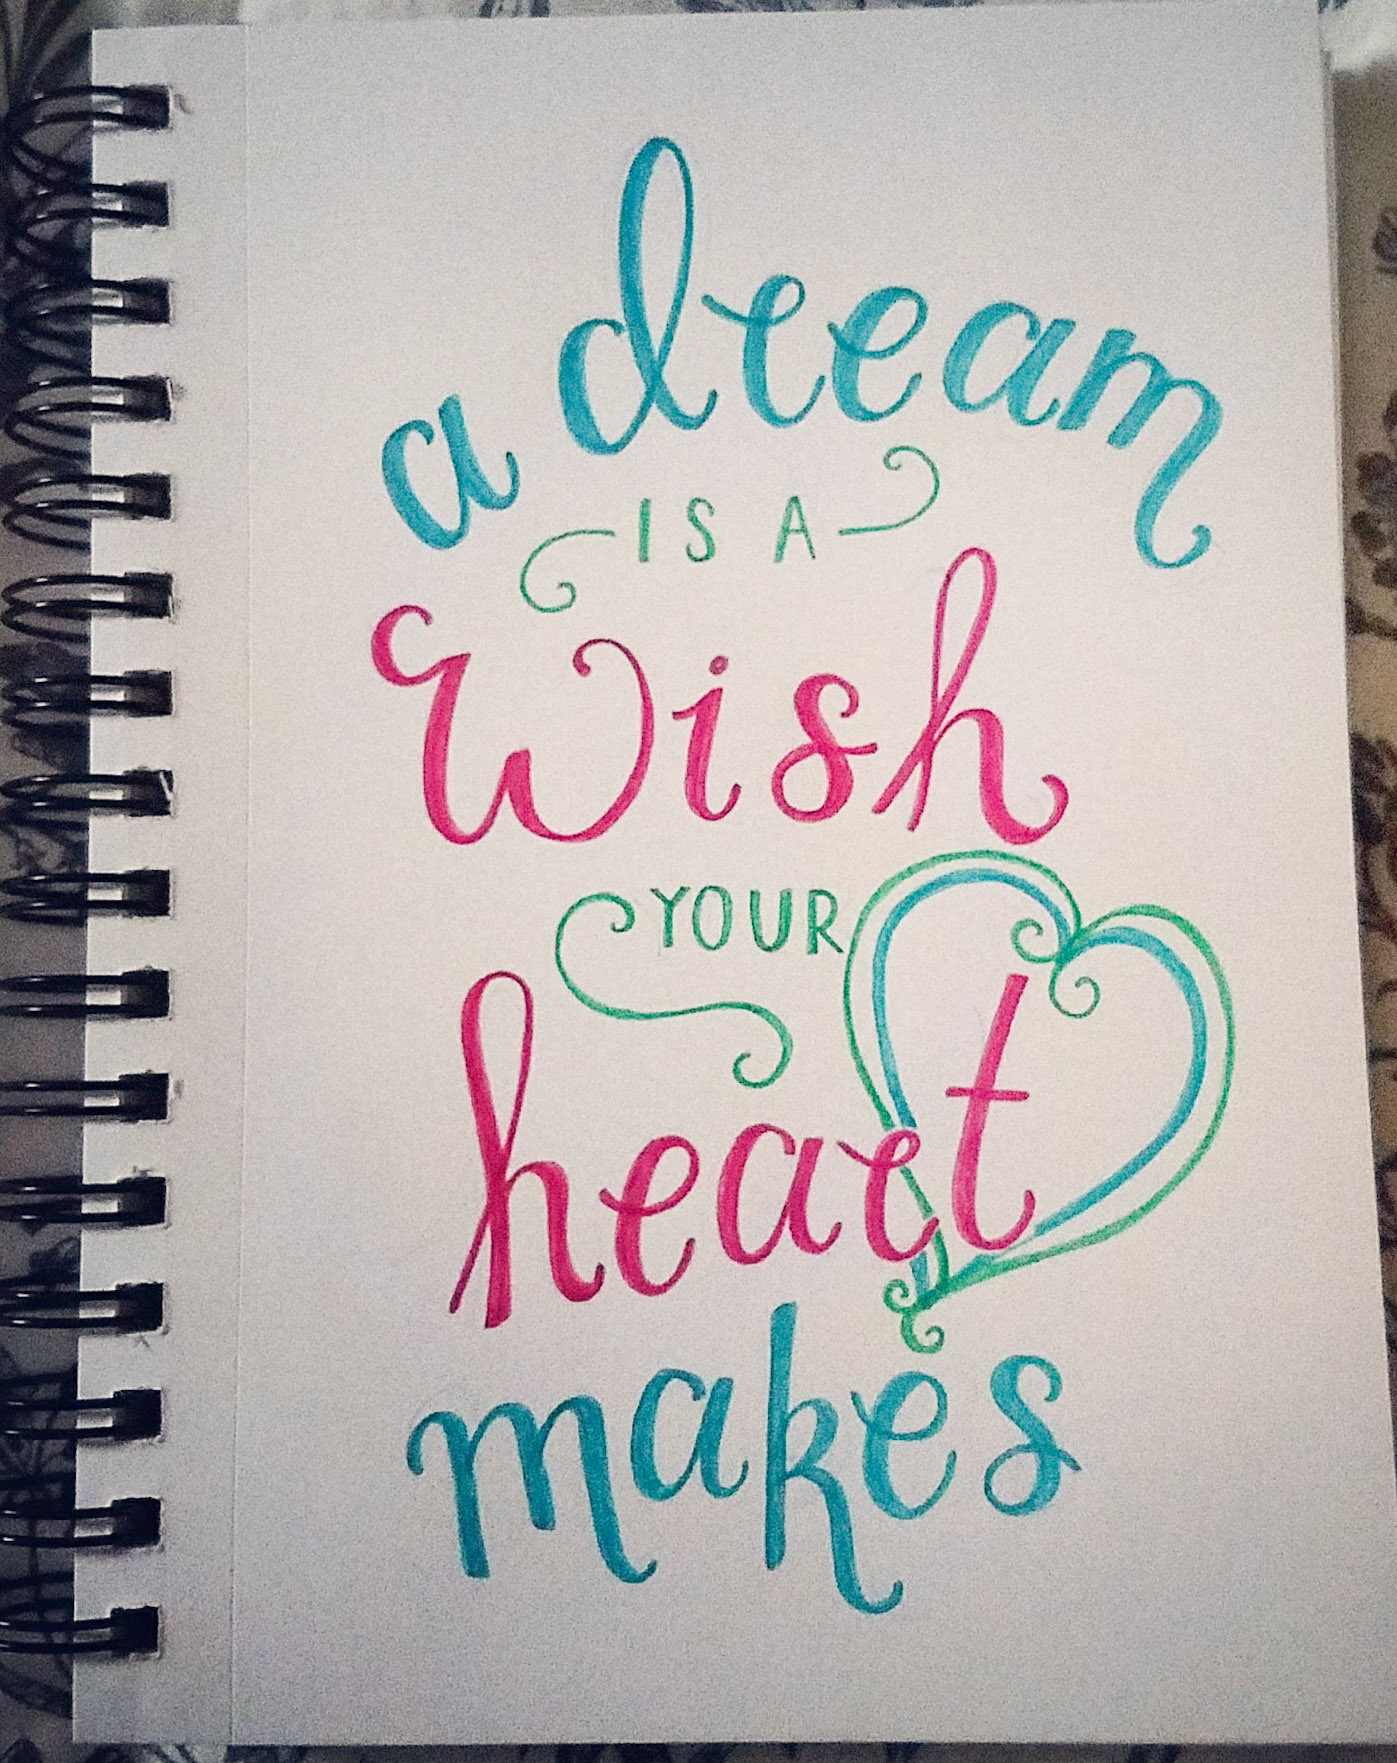 a dream
IS A
Wish
YOUR
heart
makes